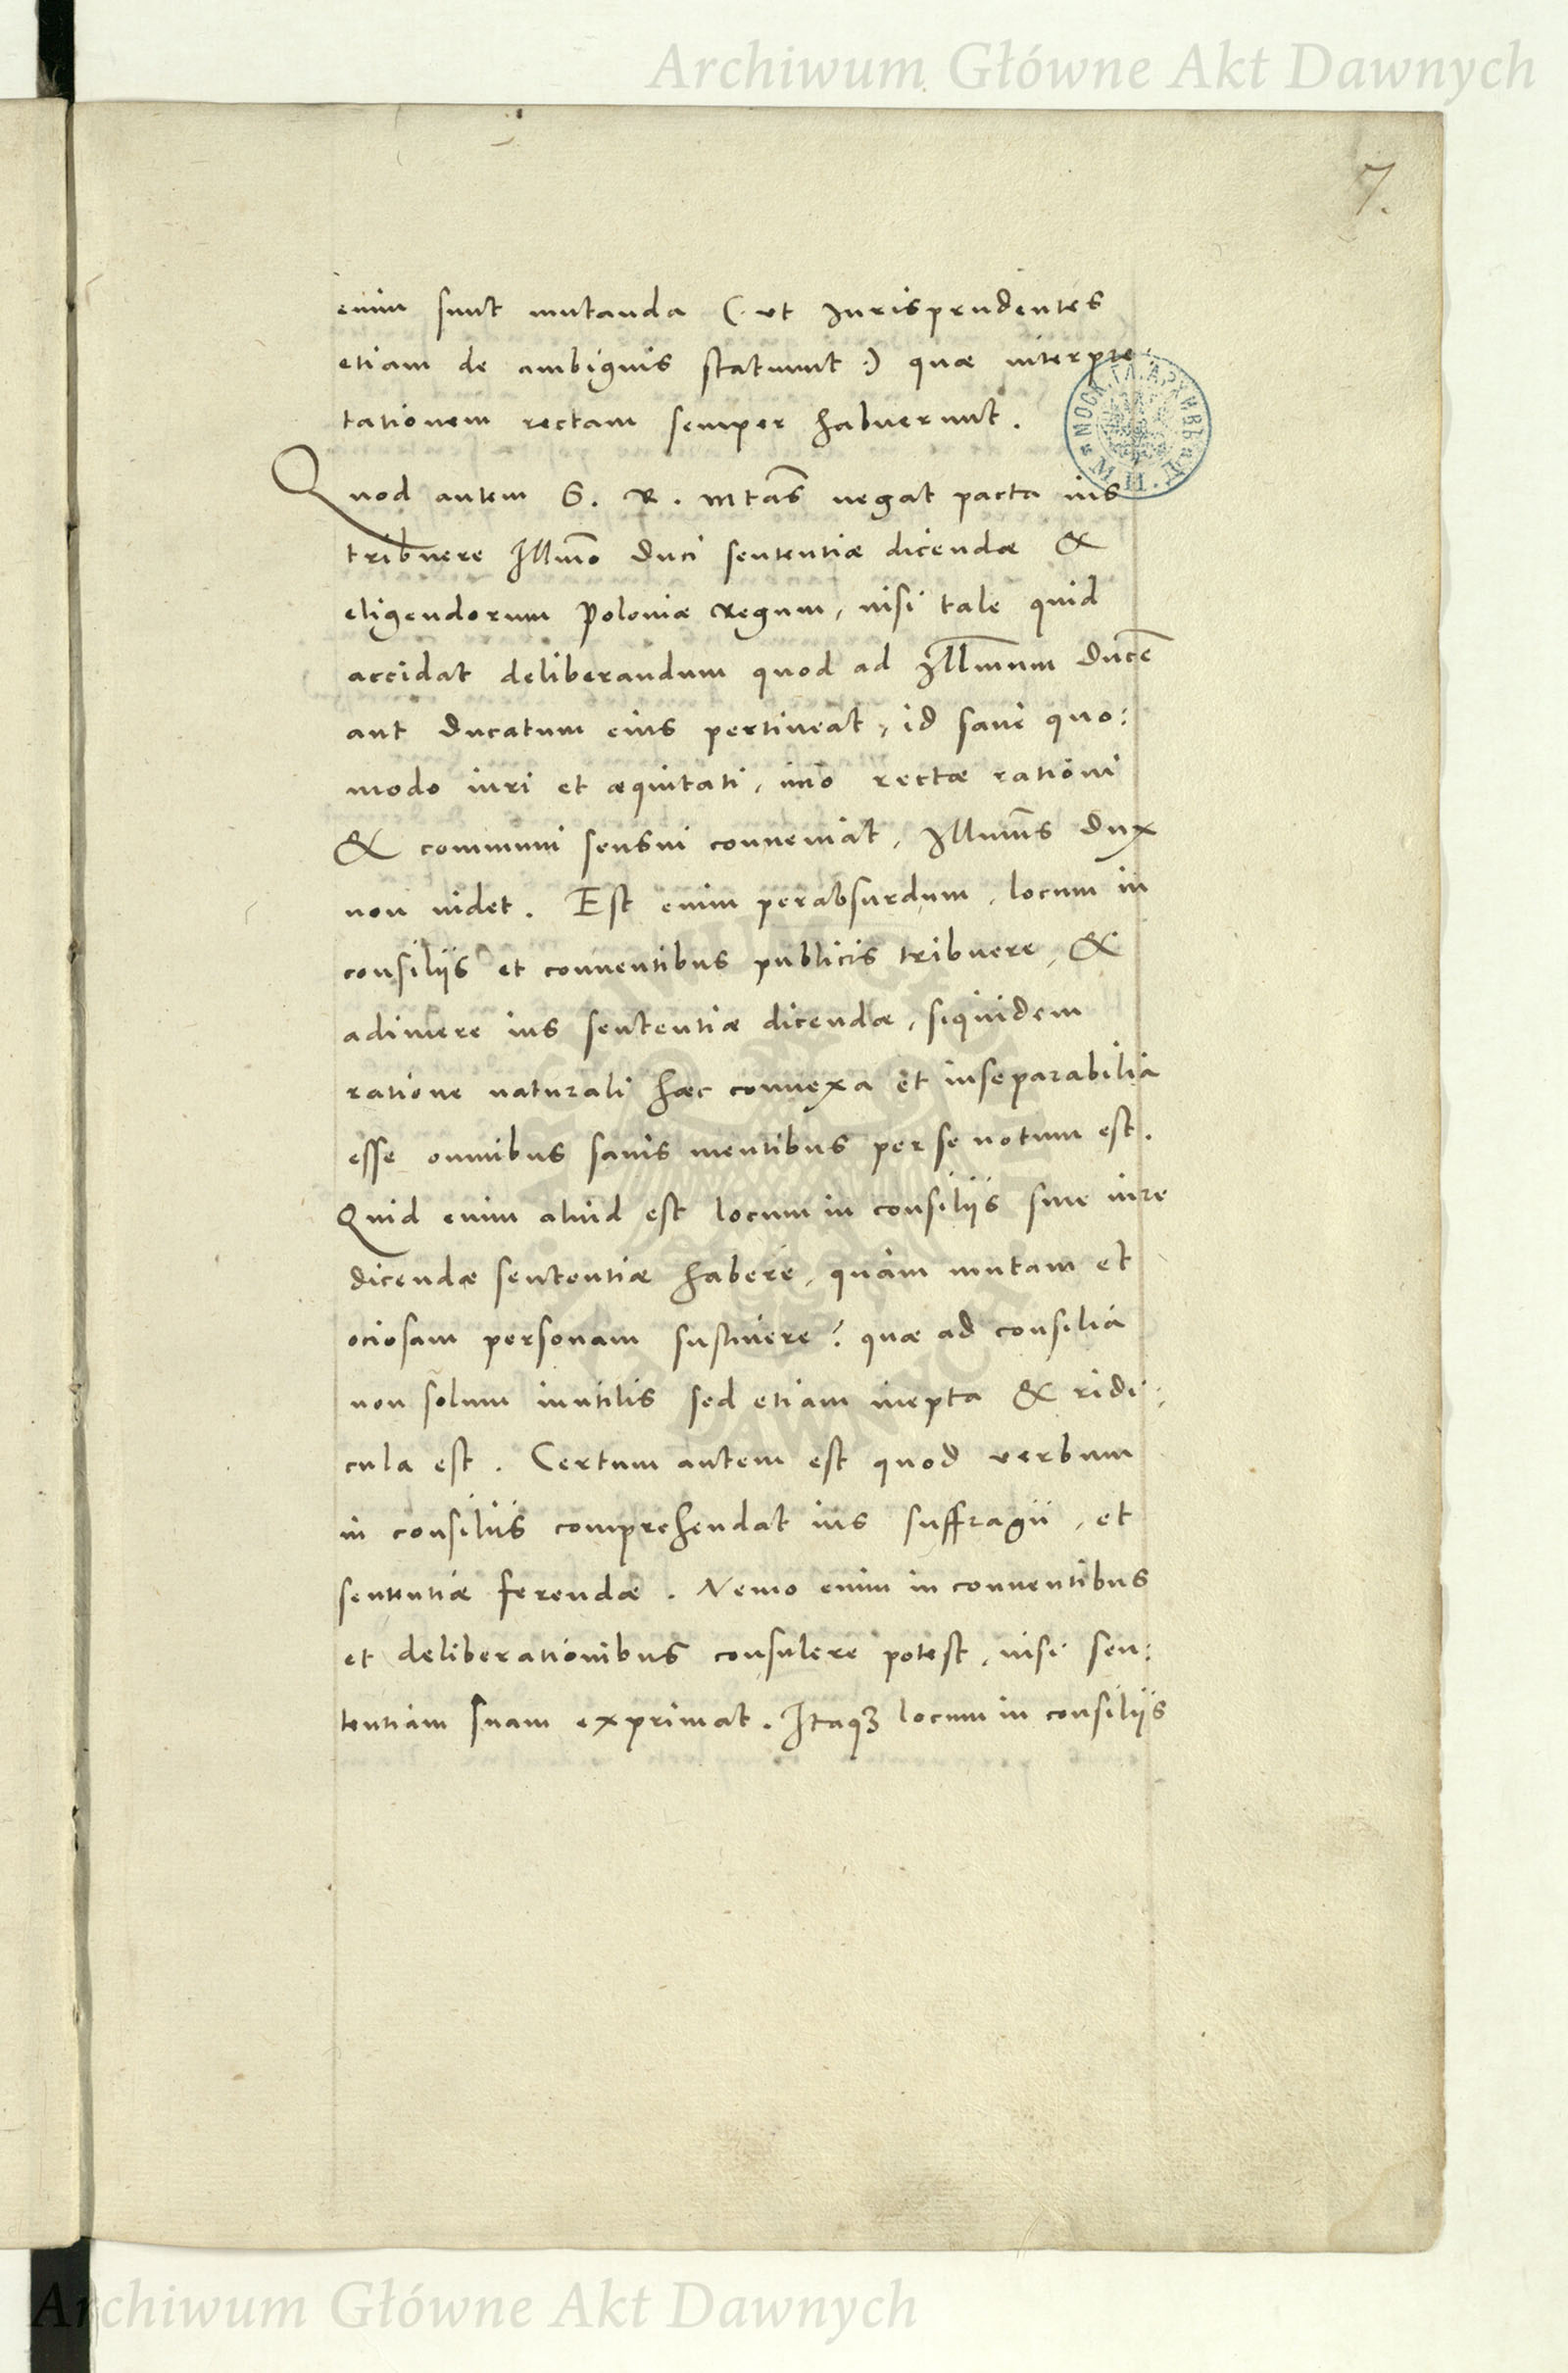 Archiwum Główne Akt Dawnych
7.
enim sunt mutanda (. ut Jurisprudentes
etiam de ambiguis statuunt .) quæ interpre:
tationem rectam semper habuerunt.
Quod autem S. R. Mtas negat pacta ius
tribuere Illmo Duci sententiæ dicendæ &
eligendorum Poloniæ Regum, nisi tale quid
accidat deliberandum quod ad Illmum Ducē
aut Ducatum eius pertineat, id sane quo:
modo iuri et æquitati, imo rectæ rationi
& communi sensui conueniat, Illmus Dux
non uidet. Est enim perabsurdum, locum in
consiliis et conuentibus publicis tribuere, &
adimere ius sententiæ dicendæ, siquidem
ratione naturali hæc connexa et inseparabilia
esse omnibus sanis mentibus per se notum est.
Quid enim aliud est locum in consiliis sine iure
dicendæ sententiæ habere, quàm mutam et
ociosam personam sustinere? quæ ad consilia
non solum inutilis sed etiam inepta & ridi:
cula est. Certum autem est quod verbum
in consiliis comprehendat ius suffragii, et
sententiæ ferendæ. Nemo enim in conuentibus
et deliberationibus consulere potest, nisi sen:
tentiam suam exprimat. Itaqʒ locum in consiliis
Archiwum Główne Akt Dawnych